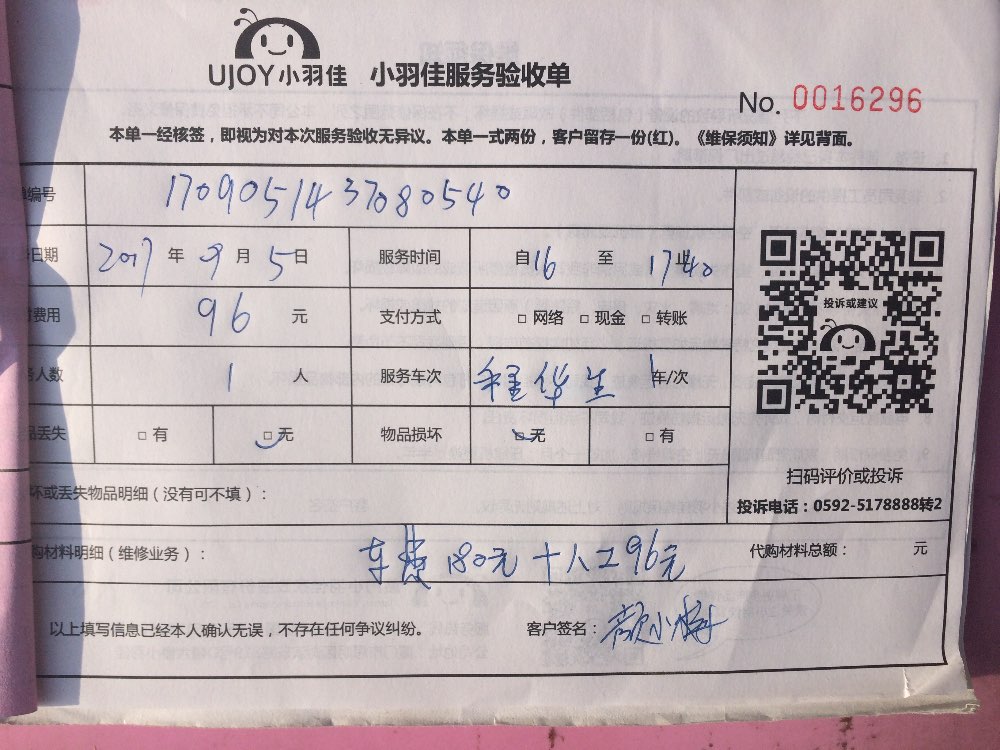 UJOY小羽佳 小羽佳服务验收单
No. 0016296
本单一经核签，即视为对本次服务验收无异议。本单一式两份，客户留存一份(红)。《维保须知》详见背面。
单编号 1709051437080540
日期 2017 年 9 月 5 日 服务时间 自16 至 17止40
费用 96 元 支付方式 □ 网络 □ 现金 □ 转账
人数 1 人 服务车次 程华生 1 车/次
品丢失 □ 有 □ 无 物品损坏 □ 无 □ 有
投诉或建议
扫码评价或投诉
投诉电话：0592-5178888转2
坏或丢失物品明细（没有可不填）：
购材料明细（维修业务）： 车费180元 + 人工96元 代购材料总额： 元
以上填写信息已经本人确认无误，不存在任何争议纠纷。 客户签名：颜小梅